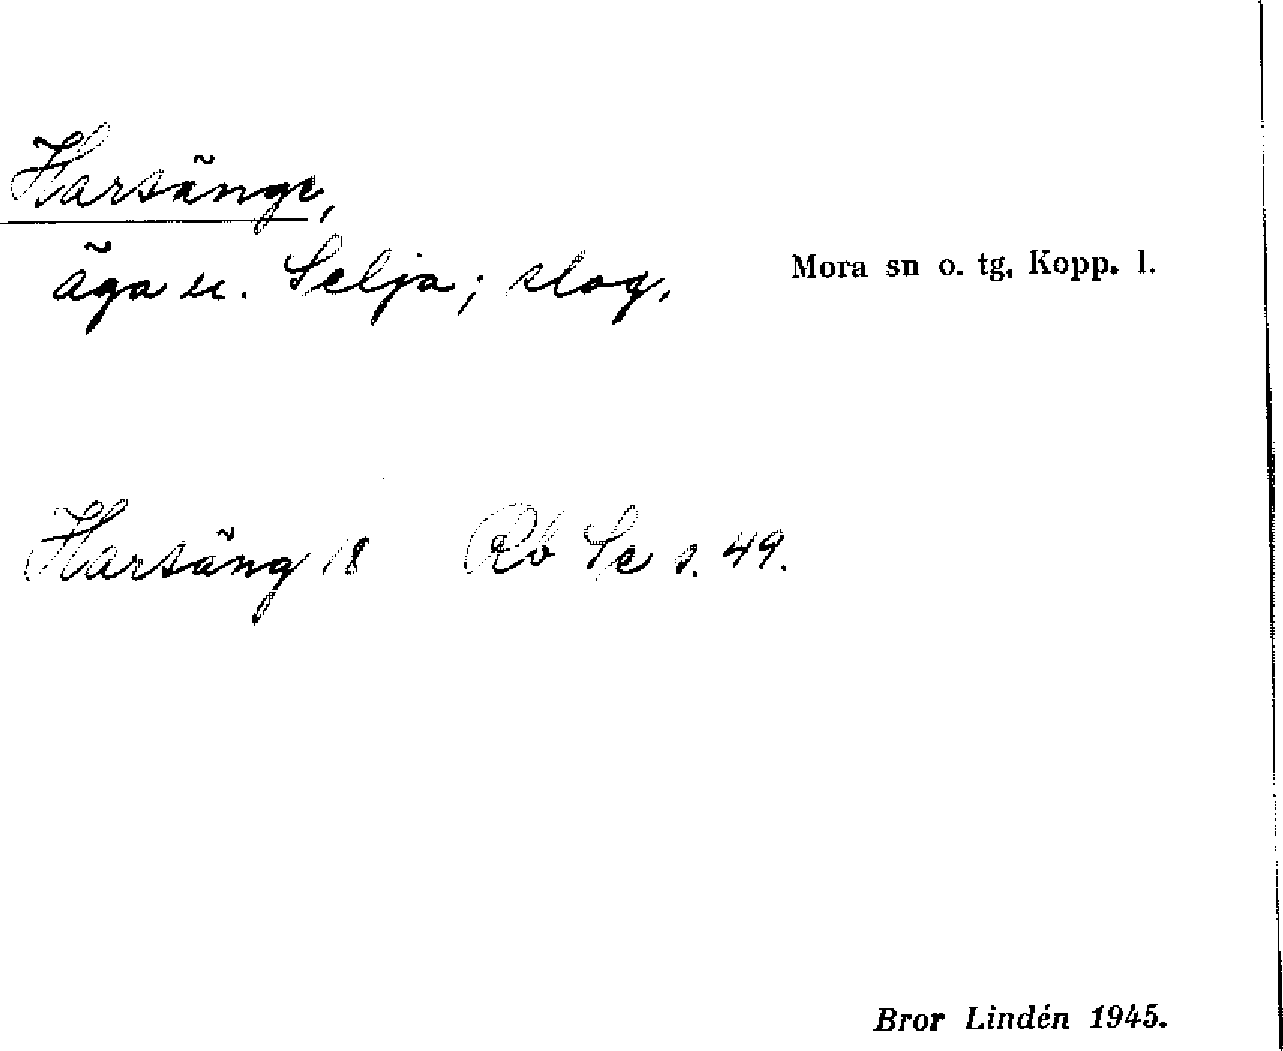 Harsänge,
äga u. Selja; slog.
Mora sn o. tg. Kopp. l.
Harsäng 18 Rb Se s. 49.
Bror Lindén 1945.